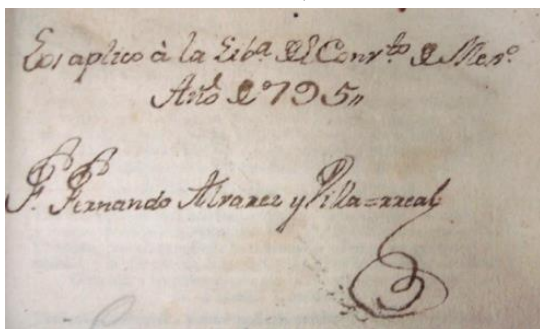 Los aplico à la Libª. del Convᵗᵒ. de Mexᵒ.
Año de 1795,,
F. Fernando Alvarez y Villa=rreal